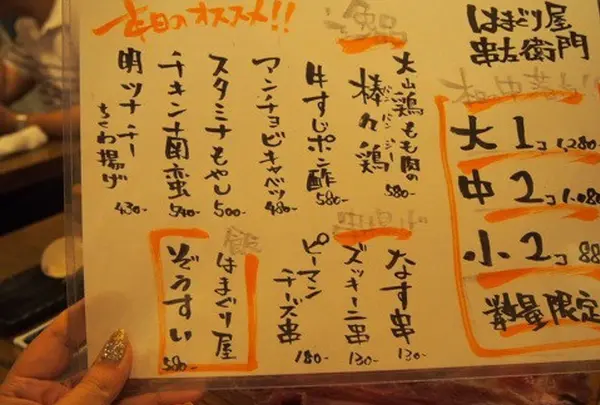 本日のオススメ!!
はまぐり屋
串左衛門
大 1コ 1,280-
中 2コ 1,080
小 2コ 88
数量限定
逸品
大山鶏もも肉の
棒々鶏 580-
バンバンジー
牛すじポン酢 580-
アンチョビキャベツ 480-
スタミナもやし 500-
チキン南蛮 540-
明ツナニー
ちくわ揚げ 430-
なす串 130-
ズッキーニ串 130-
ピーマン
チーズ串 180-
飯
はまぐり屋
ぞうすい 580-